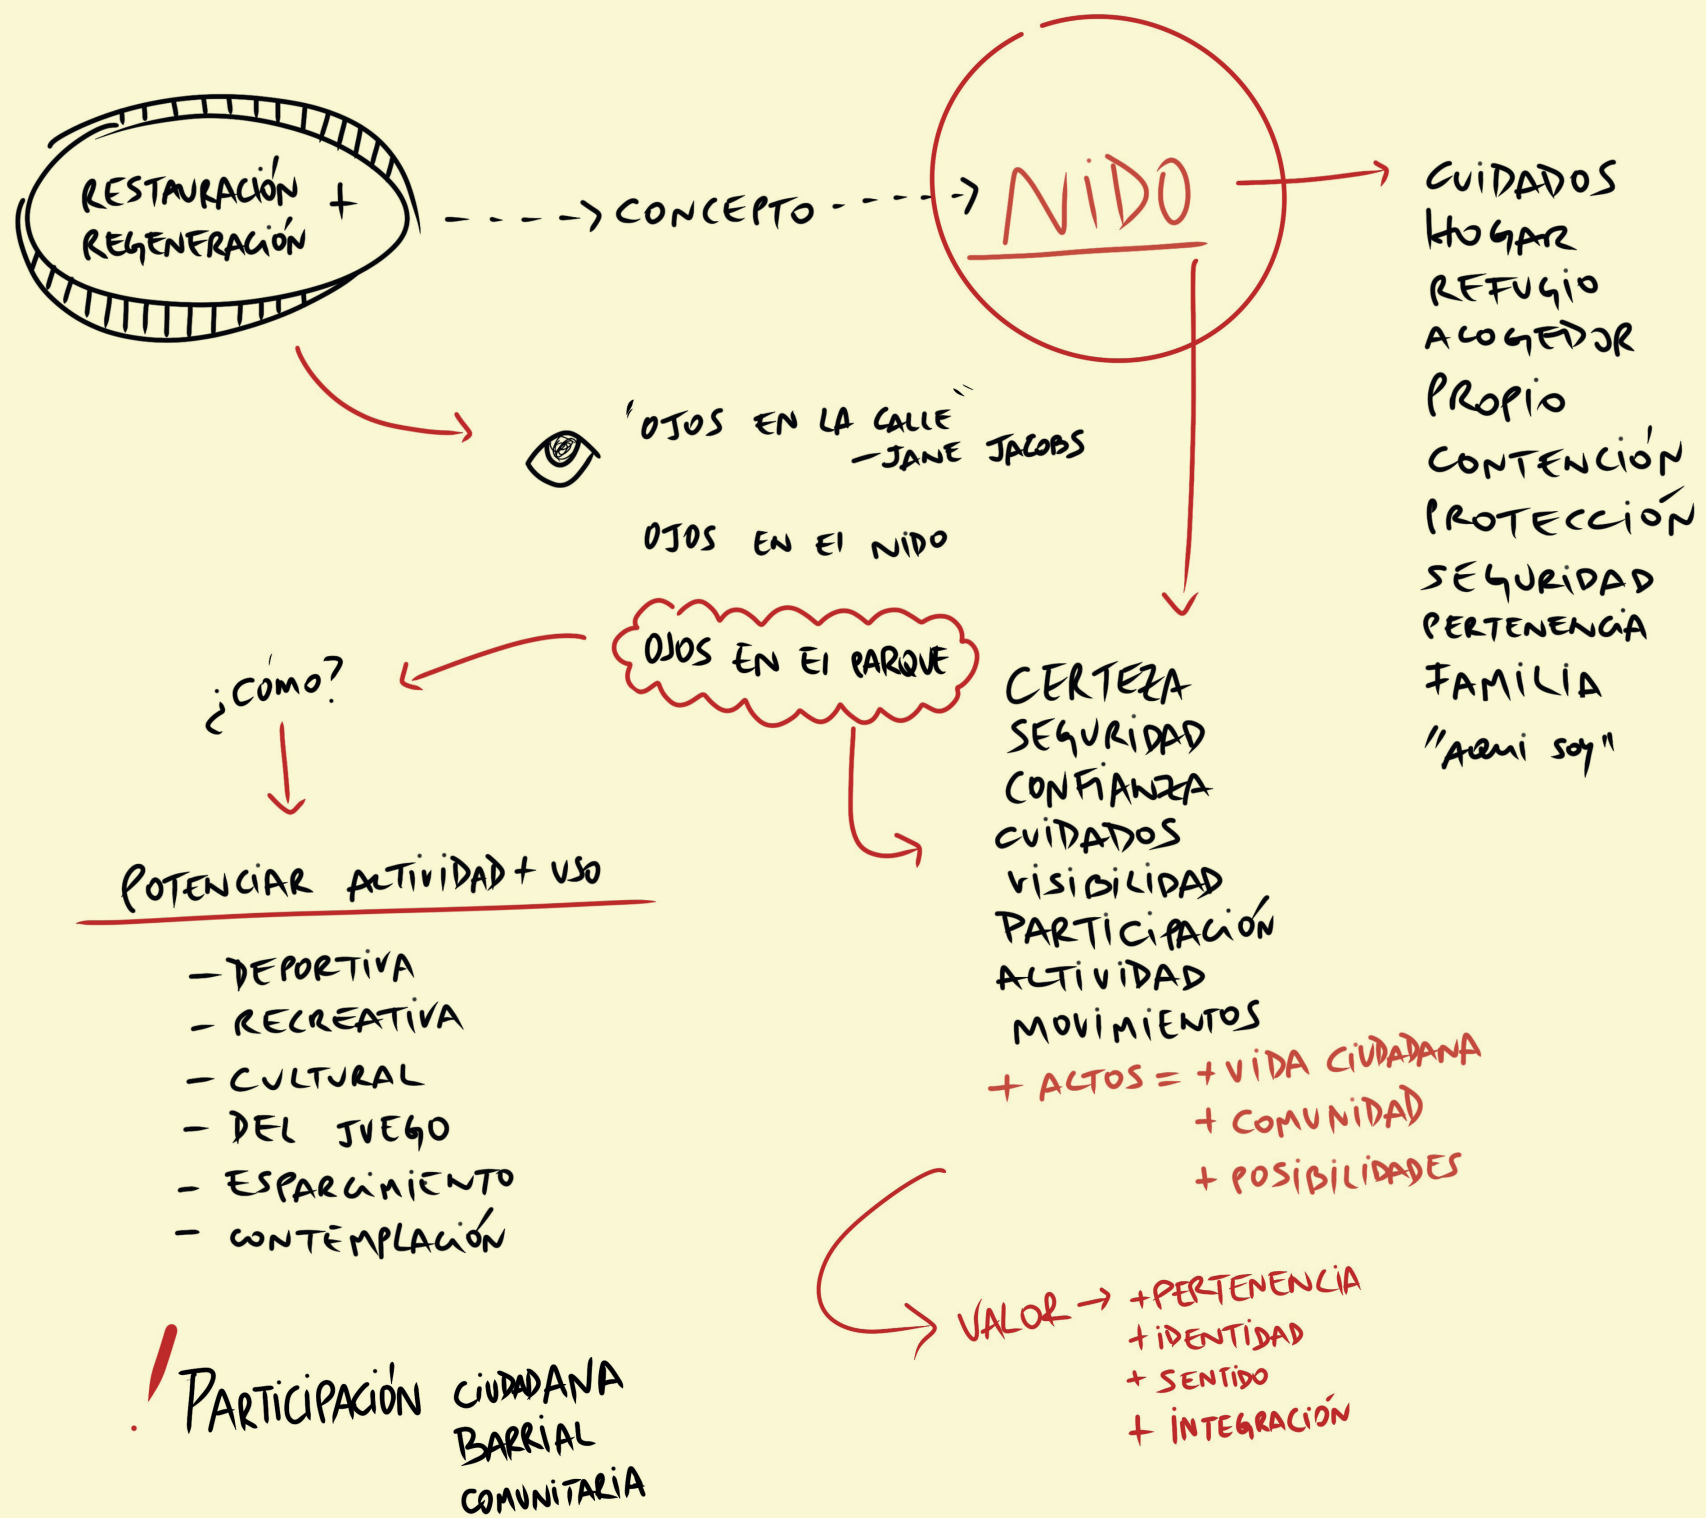 RESTAURACIÓN +
REGENERACIÓN
CONCEPTO
NIDO
CUIDADOS
HOGAR
REFUGIO
ACOGEDOR
PROPIO
CONTENCIÓN
PROTECCIÓN
SEGURIDAD
PERTENENCIA
FAMILIA
"AQUI SOY"
"OJOS EN LA CALLE"
-JANE JACOBS
OJOS EN El NIDO
OJOS EN El PARQUE
¿CÓMO?
POTENCIAR ACTIVIDAD + USO
- DEPORTIVA
- RECREATIVA
- CULTURAL
- DEL JUEGO
- ESPARCIMIENTO
- CONTEMPLACIÓN
CERTEZA
SEGURIDAD
CONFIANZA
CUIDADOS
VISIBILIDAD
PARTICIPACIÓN
ACTIVIDAD
MOVIMIENTOS
+ ACTOS = + VIDA CIUDADANA
+ COMUNIDAD
+ POSIBILIDADES
VALOR → + PERTENENCIA
+ IDENTIDAD
+ SENTIDO
+ INTEGRACIÓN
! PARTICIPACIÓN CIUDADANA
BARRIAL
COMUNITARIA